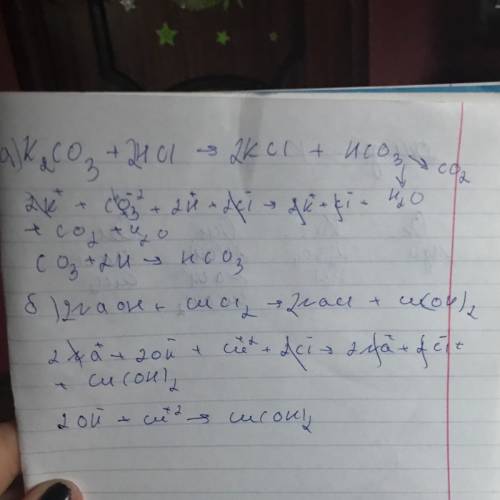 а) K₂CO₃ + 2HCl → 2KCl + HCO₃ ↘ CO₂
↓ H₂O
2K⁺ + CO₃⁻² + 2H⁺ + 2Cl⁻ → 2K⁺ + Cl⁻ +
+ CO₂ + H₂O
CO₃ + 2H → HCO₃
б) 2NaOH + CuCl₂ → 2NaCl + Cu(OH)₂
2Na⁺ + 2OH⁻ + Cu⁺² + 2Cl⁻ → 2Na⁺ + 2Cl⁻ +
+ Cu(OH)₂
2OH⁻ + Cu⁺² → Cu(OH)₂